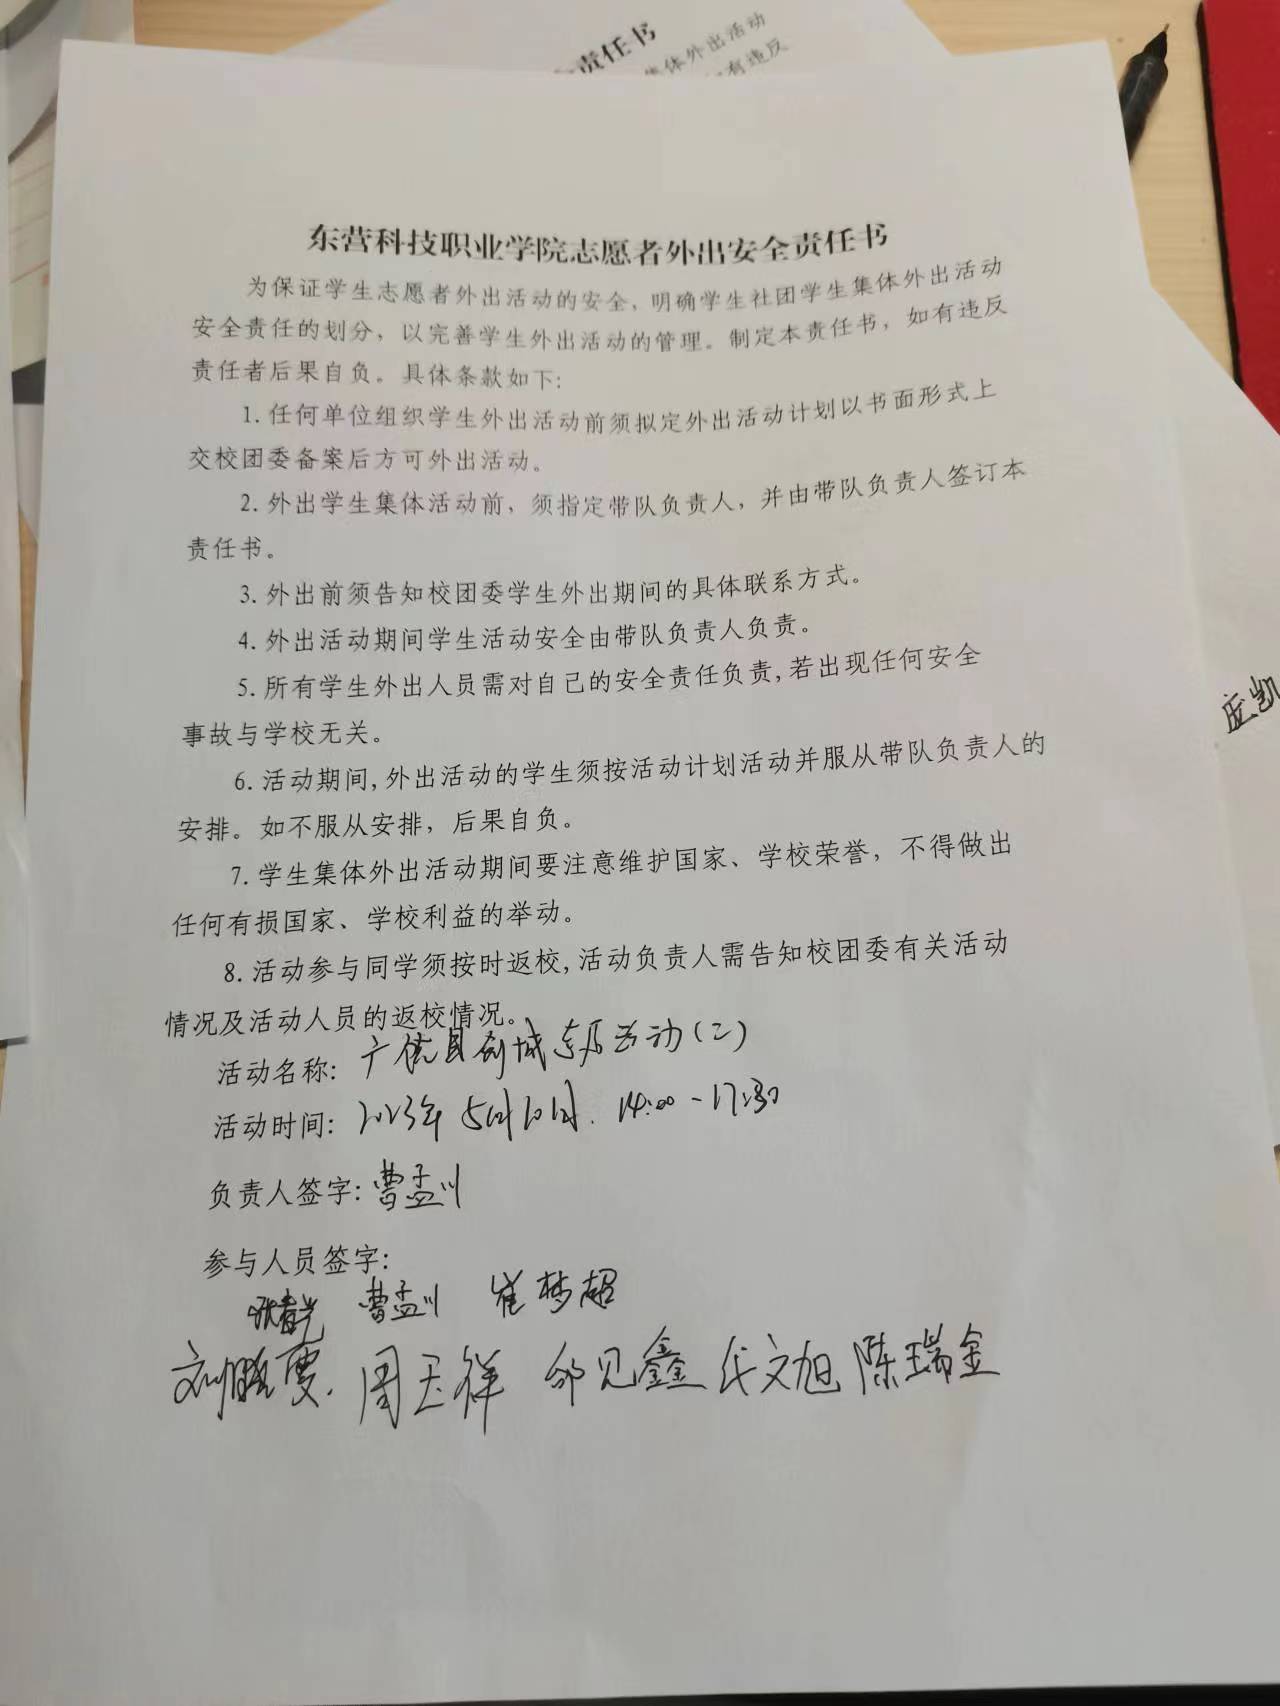 责任书
集体外出活动
有违反
东营科技职业学院志愿者外出安全责任书
为保证学生志愿者外出活动的安全，明确学生社团学生集体外出活动
安全责任的划分，以完善学生外出活动的管理。制定本责任书，如有违反
责任者后果自负。具体条款如下：
1.任何单位组织学生外出活动前须拟定外出活动计划以书面形式上
交校团委备案后方可外出活动。
2.外出学生集体活动前，须指定带队负责人，并由带队负责人签订本
责任书。
3.外出前须告知校团委学生外出期间的具体联系方式。
4.外出活动期间学生活动安全由带队负责人负责。
5.所有学生外出人员需对自己的安全责任负责,若出现任何安全
事故与学校无关。
6.活动期间,外出活动的学生须按活动计划活动并服从带队负责人的
安排。如不服从安排，后果自负。
7.学生集体外出活动期间要注意维护国家、学校荣誉，不得做出
任何有损国家、学校利益的举动。
8.活动参与同学须按时返校,活动负责人需告知校团委有关活动
情况及活动人员的返校情况。
活动名称: 广饶县创城志愿活动(二)
活动时间: 2023年5月10日. 14:00-17:30
负责人签字: 曹孟川
参与人员签字:
曹孟川 崔梦超
周玉祥 邹见鑫 文旭 陈瑞金
凯